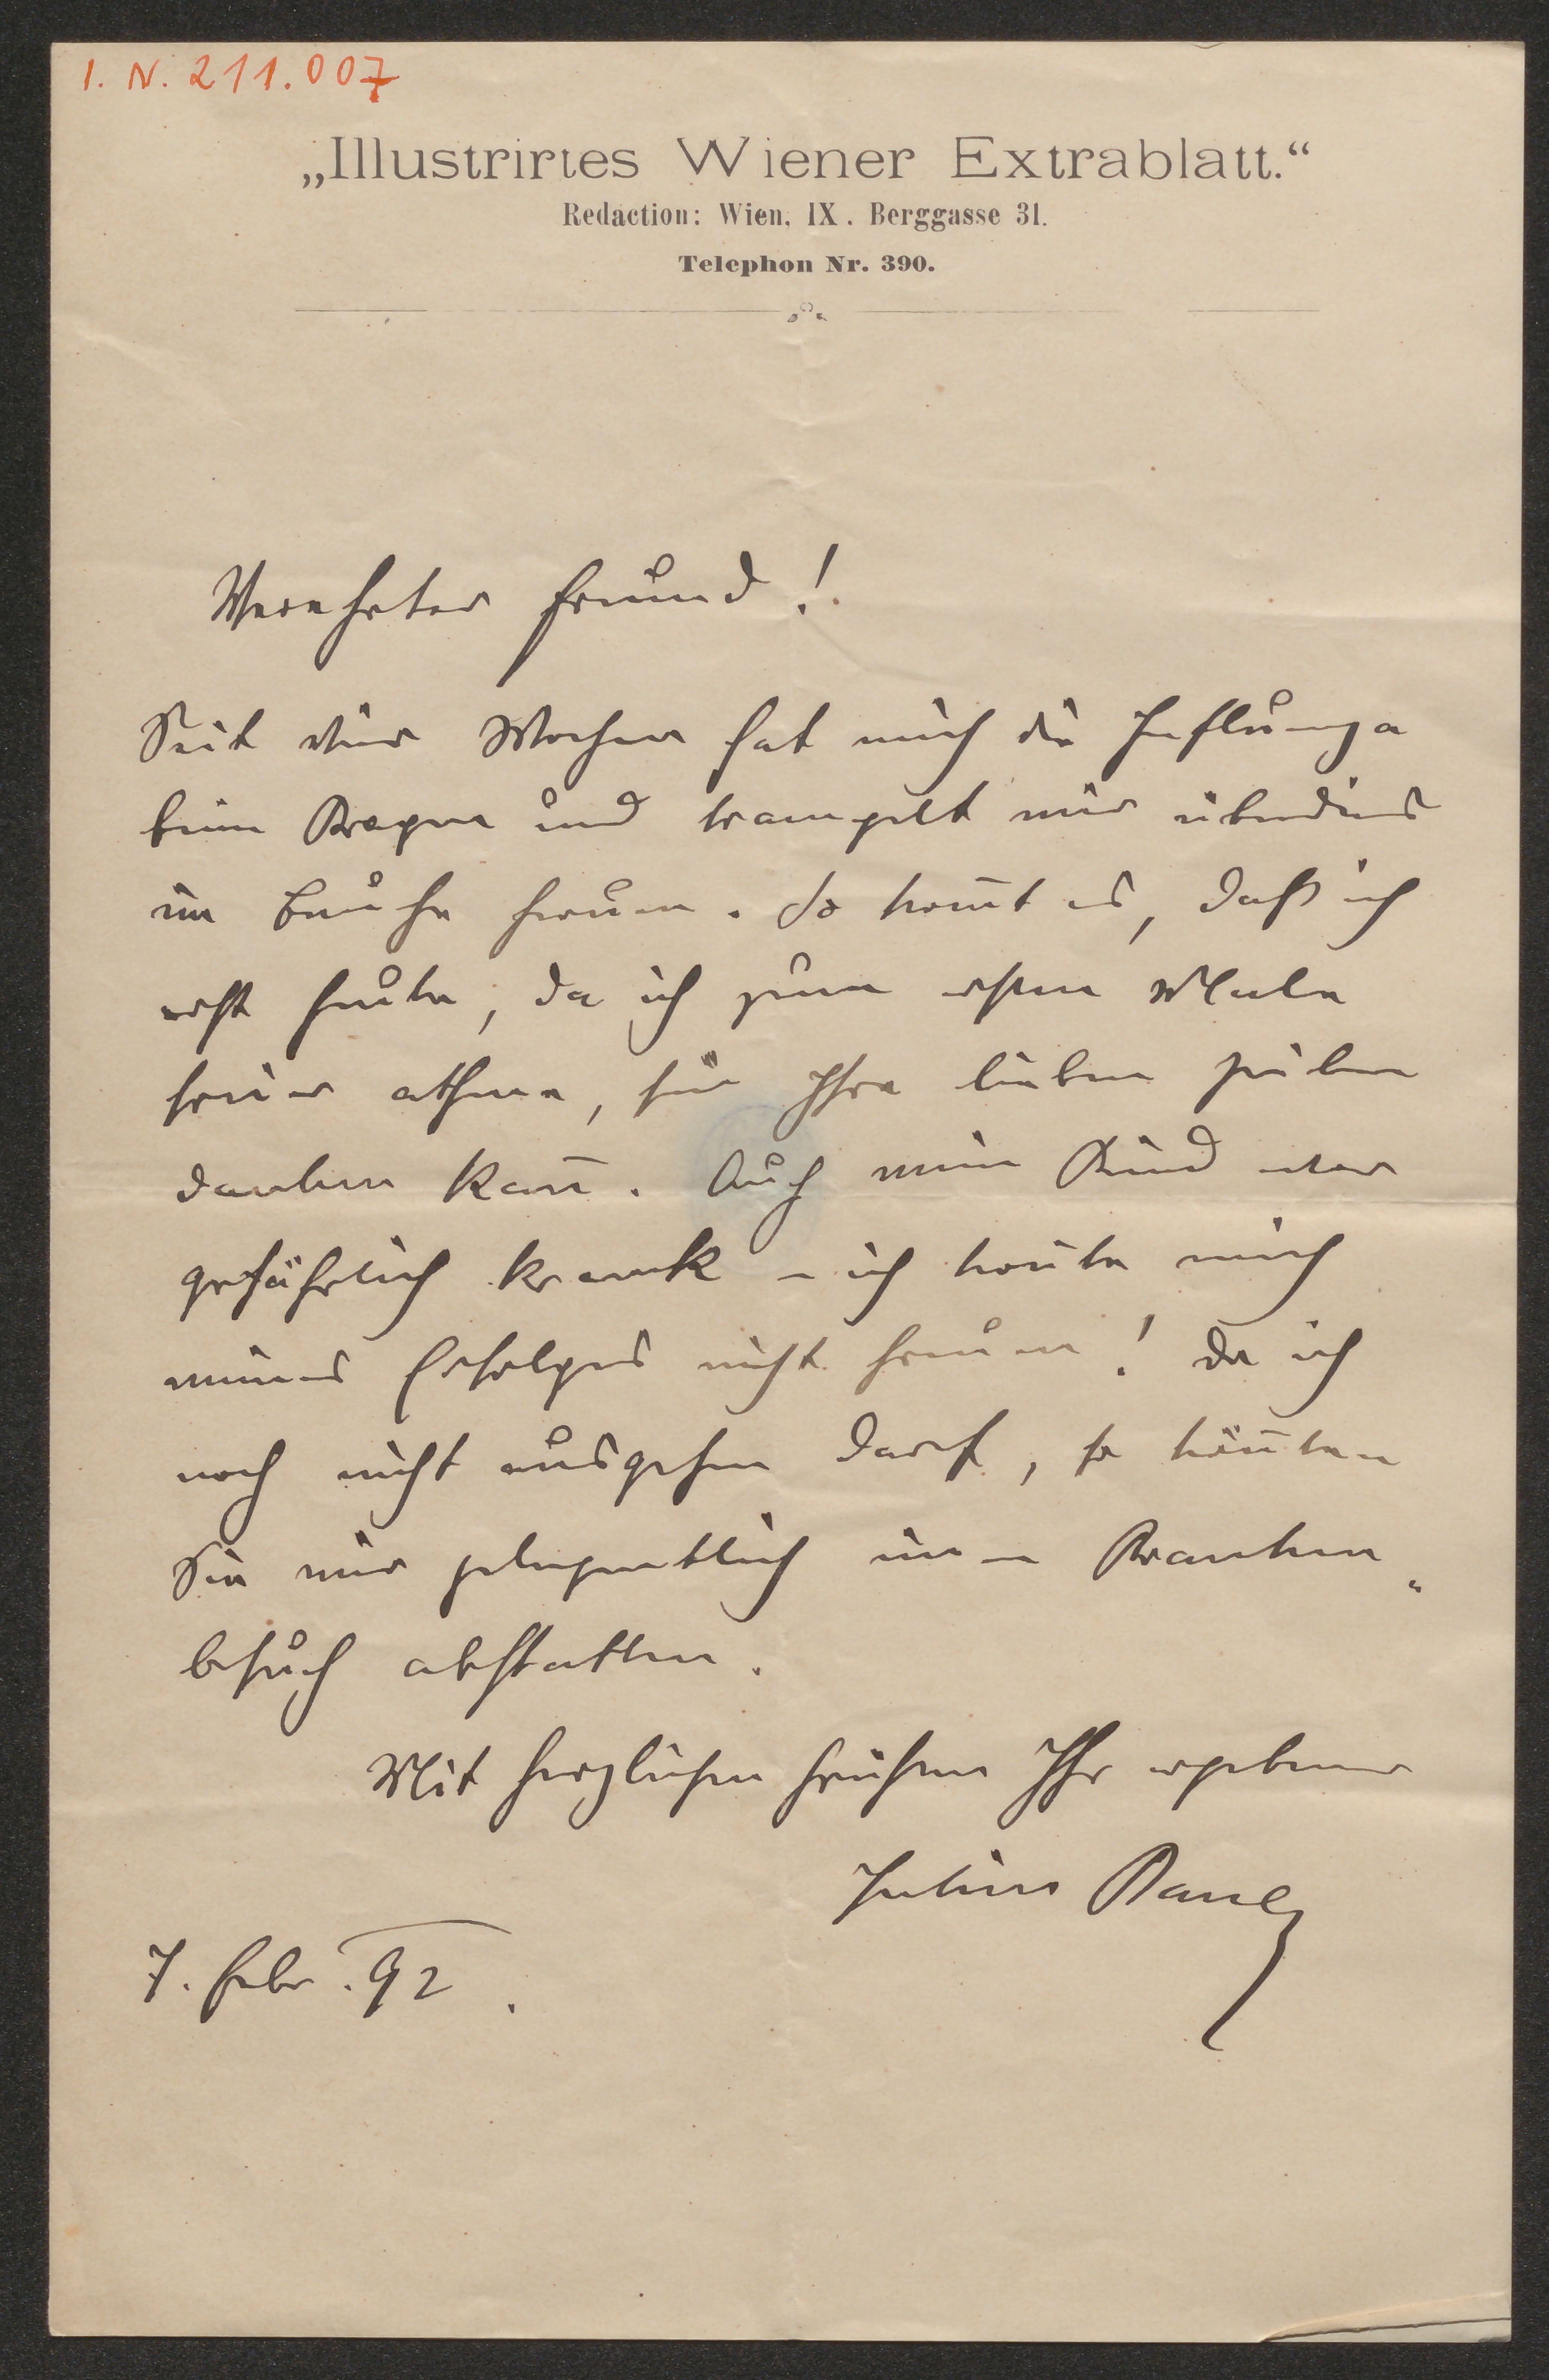 I. N. 211.007
„Illustrirtes Wiener Extrablatt.“
Redaction: Wien, IX. Berggasse 31.
Telephon Nr. 390.
Verehrter Freund!
Seit vier Wochen hat mich die Influenza
beim Kragen und trampelt mir überdies
im Bauche herum. So kom̅t es, daß ich
erst heute, da ich zum ersten Male
freier athme, für Ihre lieben Zeilen
danken kan̅. Auch mein Kind war
gefährlich krank – ich kon̅te mich
meines Erfolges nicht freuen! Da ich
noch nicht ausgehen darf, so kön̅ten
Sie mir gelegentlich einen Kranken„
besuch abstatten.
Mit herzlichen Grüßen Ihr ergebener
Julius Bauer
7. Febr. 92.